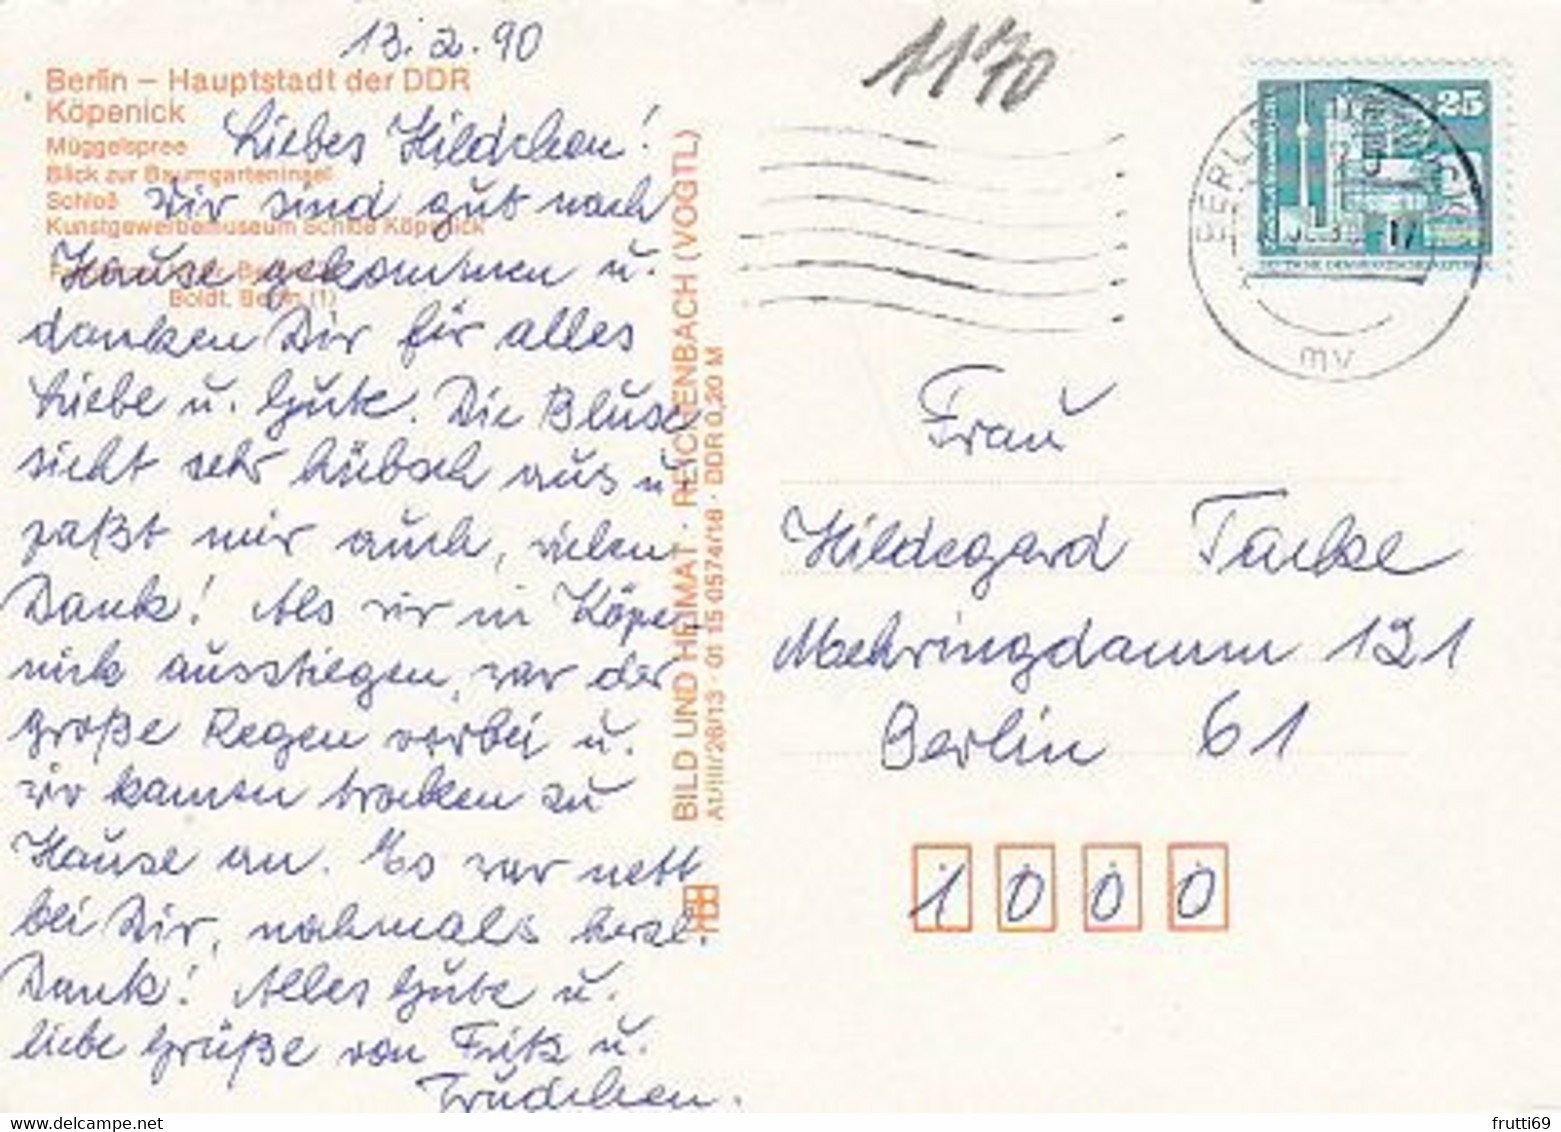 13.2.90
Berlin – Hauptstadt der DDR
Köpenick
Müggelspree
Blick zur Baumgarteninsel
Schloß
Kunstgewerbemuseum Schloß Köpenick
Boldt, Berlin (1)
Liebes Hildchen!
Wir sind gut nach
Hause gekommen u.
danken Dir für alles
Liebe u. Gute. Die Bluse
sieht sehr hübsch aus u.
paßt mir auch, vielen
Dank! Als wir in Köpe-
nick ausstiegen, war der
große Regen vorbei u.
wir kamen trocken zu
Hause an. Es war nett
bei Dir, nochmals herzl.
Dank! Alles Gute u.
liebe Grüße von Fritz u.
Trudchen.
BILD UND HEIMAT · REICHENBACH (VOGTL)
A1/III/26/13 · 01 15 0574/18 · DDR 0,20 M
1170
25
BERLIN
17
mv
Frau
Hildegard Tacke
Mehringdamm 121
Berlin 61
1000
frutti69